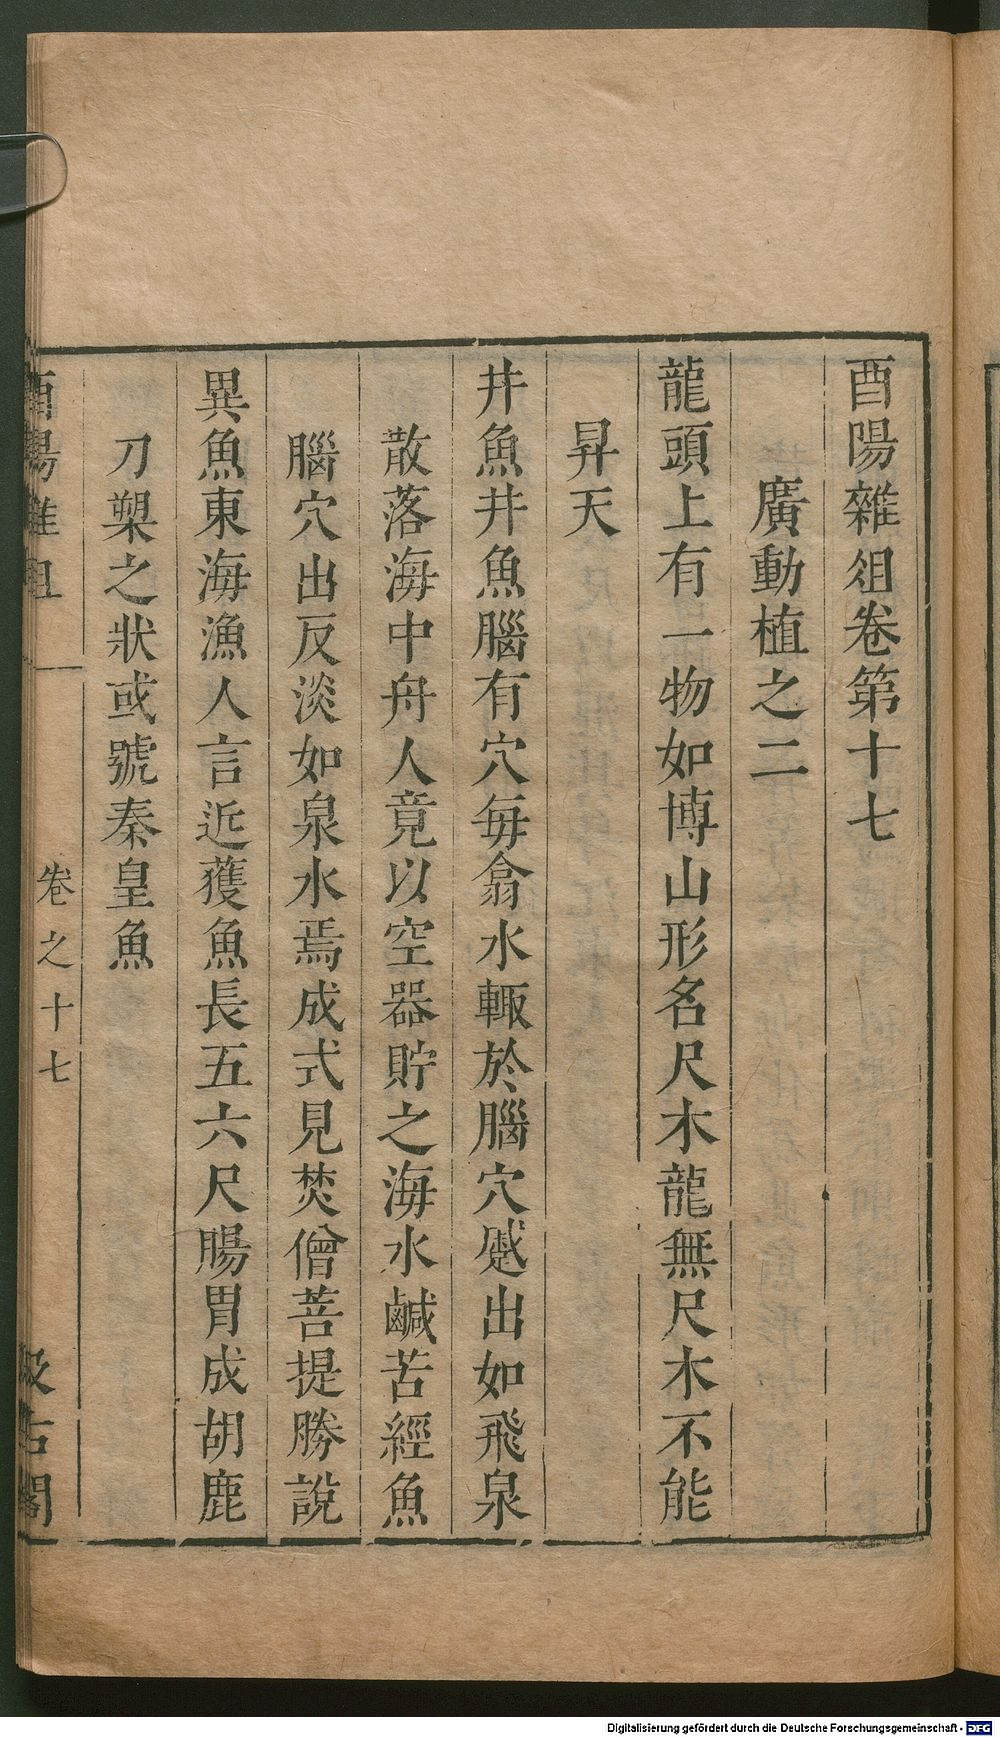 酉陽雜俎卷第十七
廣動植之二
龍頭上有一物如博山形名尺木龍無尺木不能
昇天
井魚井魚腦有穴每翕水輙於腦穴蹙出如飛泉
散落海中舟人竟以空器貯之海水鹹苦經魚
腦穴出反淡如泉水焉成式見梵僧菩提勝說
異魚東海漁人言近獲魚長五六尺腸胃成胡鹿
刀槊之狀或號秦皇魚
酉陽雜俎 卷之十七 汲古閣
Digitalisierung gefördert durch die Deutsche Forschungsgemeinschaft - DFG